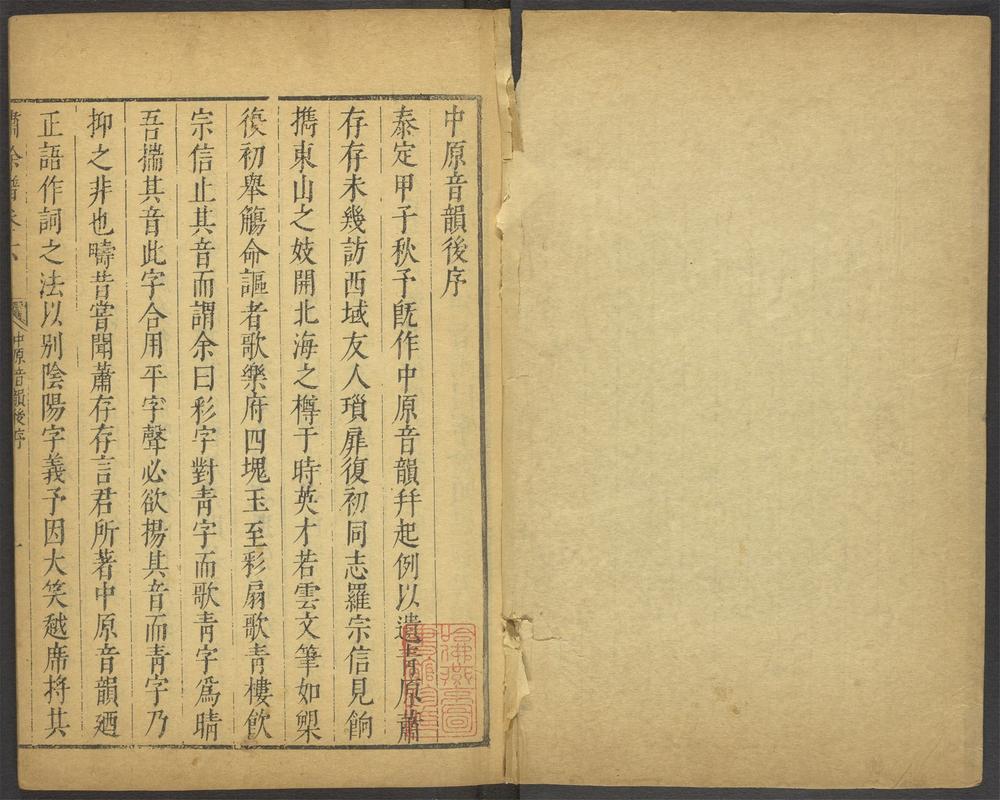 中原音韻後序
泰定甲子秋予旣作中原音韻幷起例以遺青原蕭
存存未幾訪西域友人瑣扉復初同志羅宗信見餉
携東山之妓開北海之樽于時英才若雲文筆如槊
復初舉觴命謳者歌樂府四塊玉至彩扇歌青樓飲
宗信止其音而謂余曰彩字對青字而歌青字爲晴
吾揣其音此字合用平字聲必欲揚其音而青字乃
抑之非也疇昔嘗聞蕭存存言君所著中原音韻廼
正語作詞之法以別陰陽字義予因大笑越席捋其
嘯餘譜卷六
中原音韻後序
一
哈佛燕京